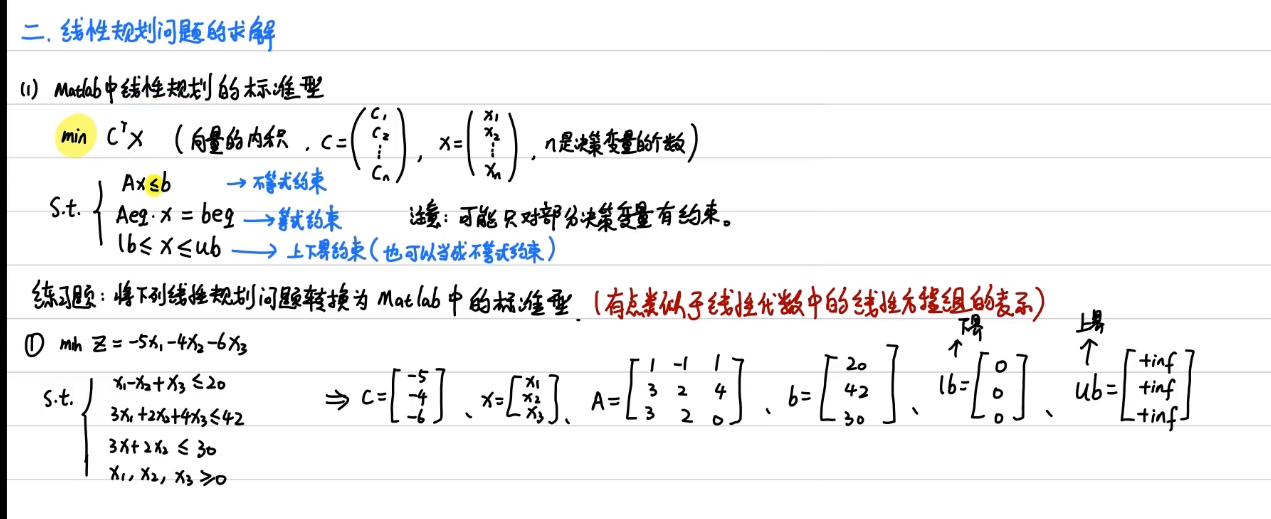 二. 线性规划问题的求解
(1) Matlab中线性规划的标准型
min CᵀX (向量的内积, C=(C₁ C₂ ⋮ Cₙ), X=(X₁ X₂ ⋮ Xₙ), n是决策变量的个数)
S.t. { Ax≤b → 不等式约束
Aeq·x = beq → 等式约束 注意: 可能只对部分决策变量有约束。
lb≤x≤ub → 上下界约束(也可以当成不等式约束)
练习题: 将下列线性规划问题转换为 Matlab 中的标准型. (有点类似于线性代数中的线性方程组的表示)
① min Z=-5x₁-4x₂-6x₃
S.t. { x₁-x₂+x₃≤20
3x₁+2x₂+4x₃≤42
3x+2x₂≤30
x₁, x₂, x₃≥0
⇒ C=[-5 -4 -6]、X=[x₁ x₂ x₃]、A=[1 -1 1; 3 2 4; 3 2 0]、b=[20 42 30]、lb=[0 0 0]、ub=[+inf +inf +inf]
下界 上界